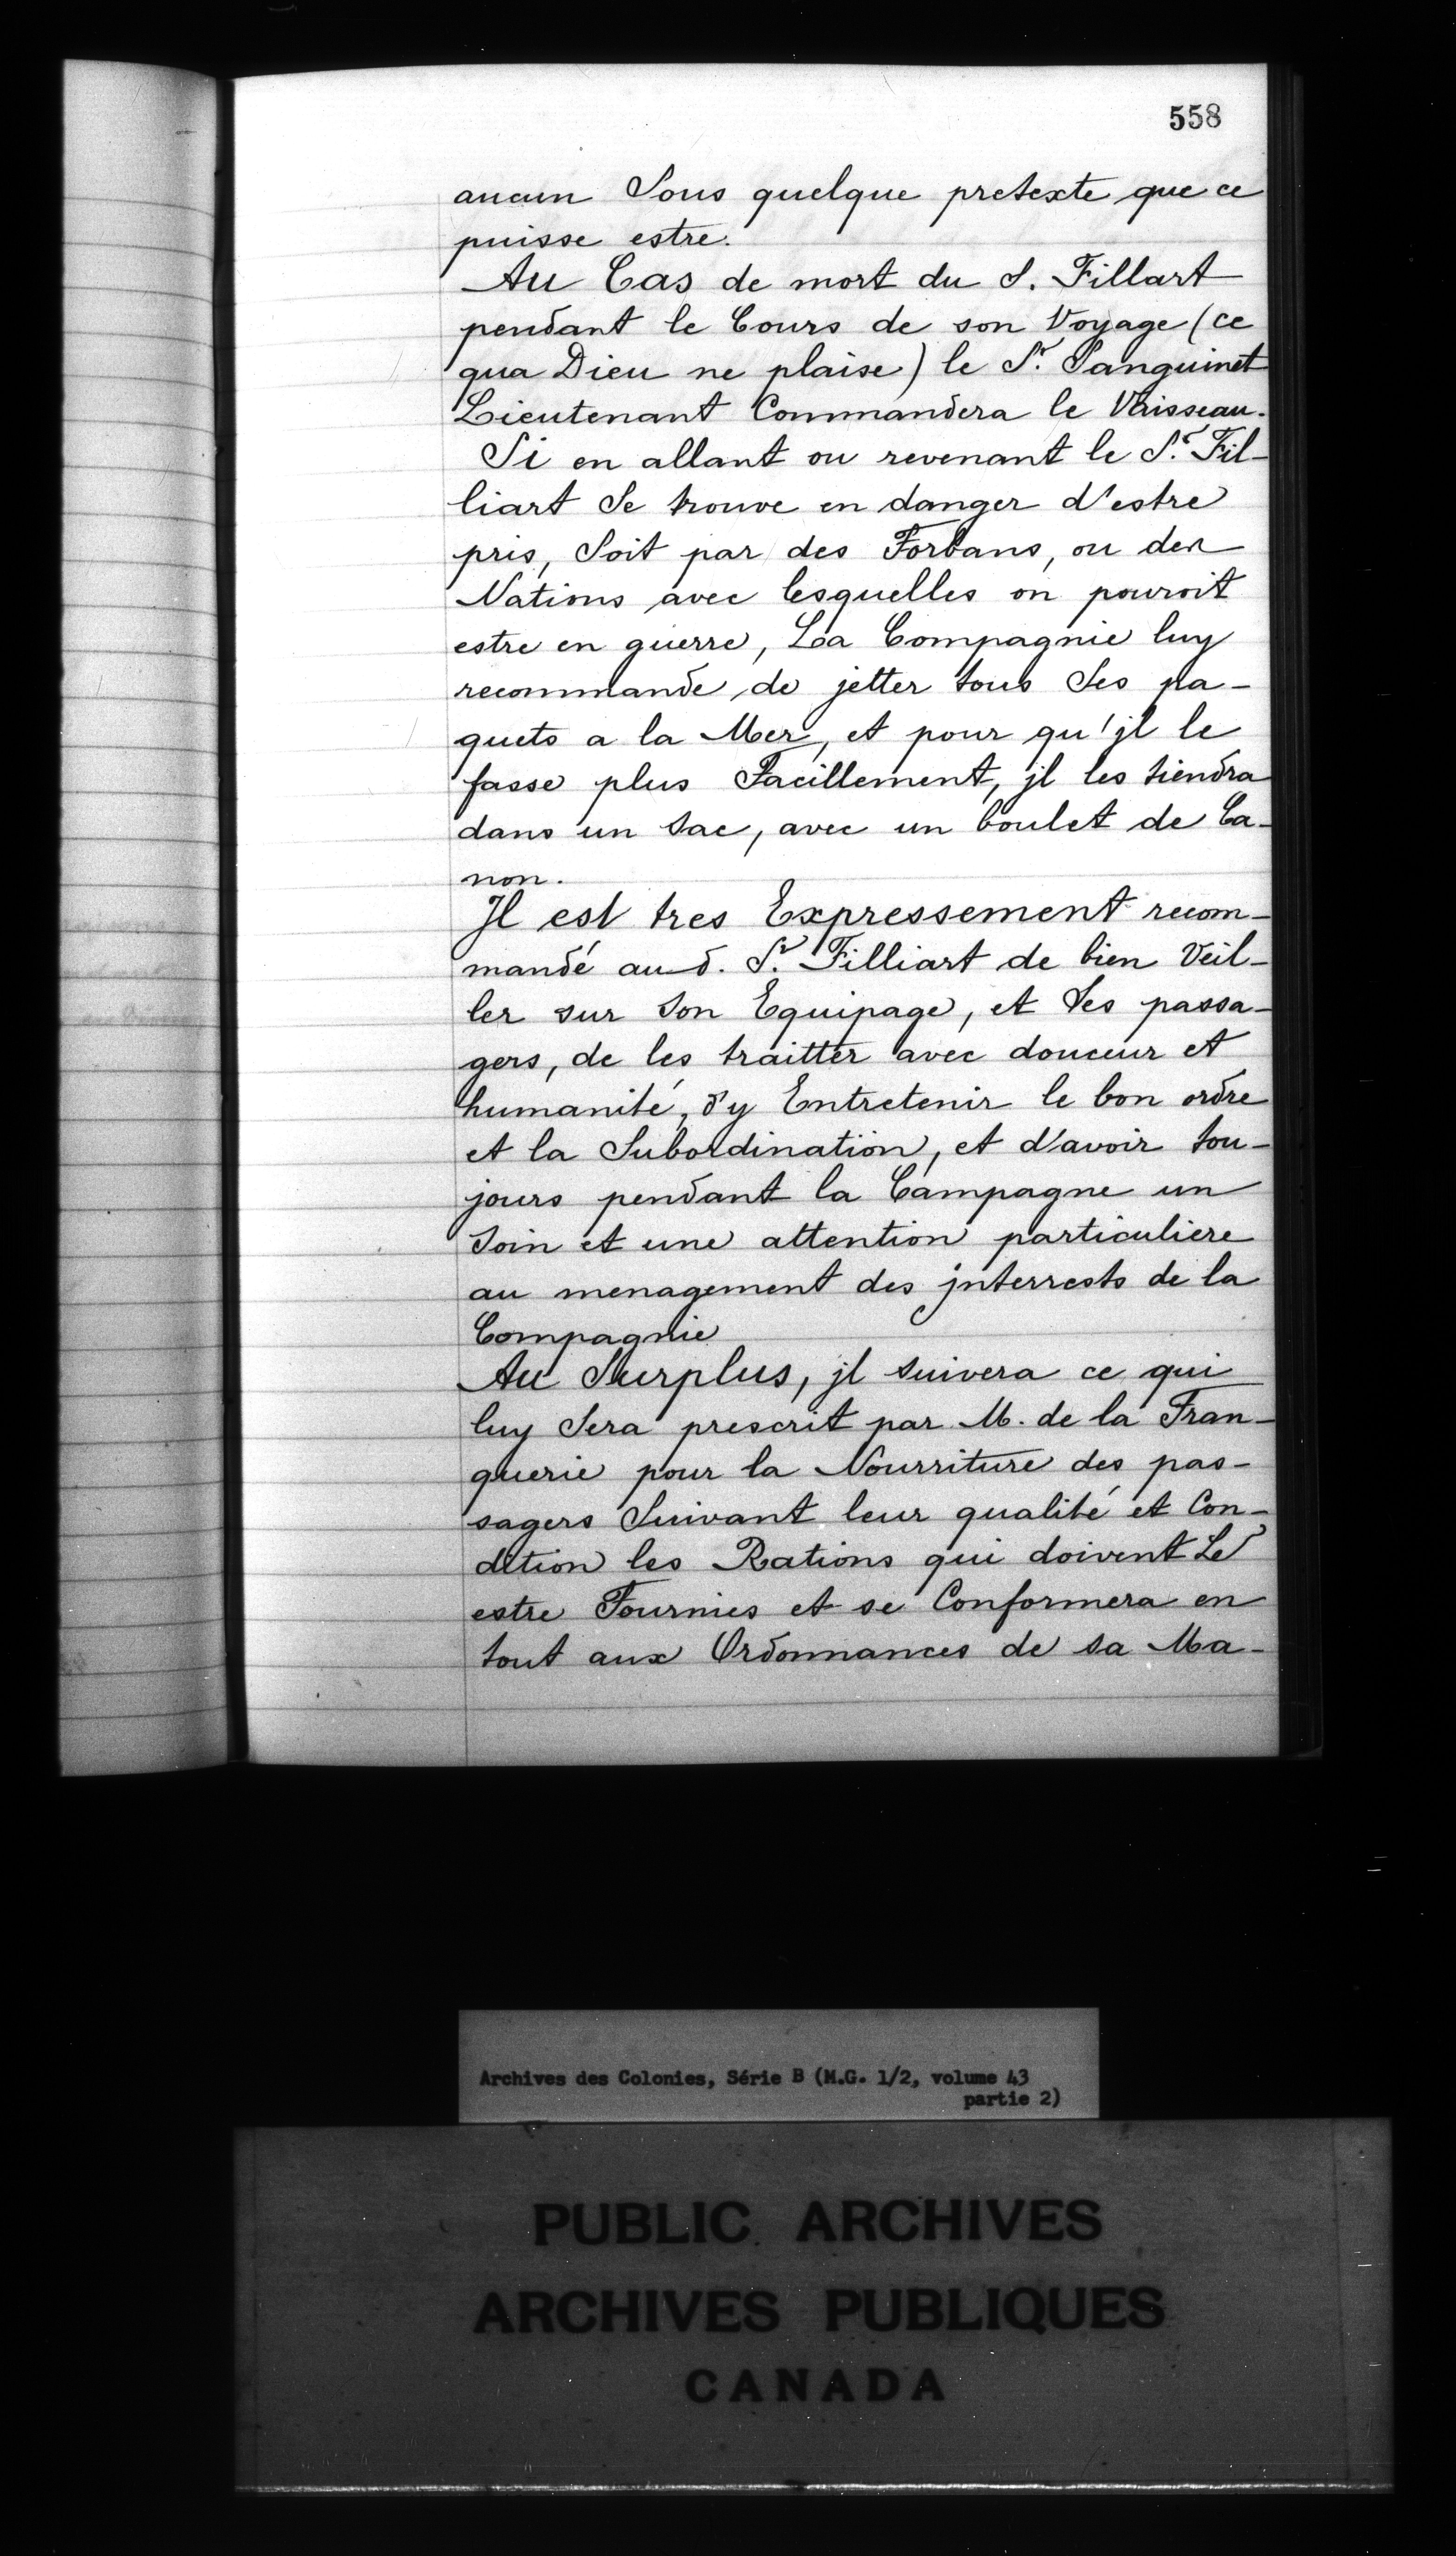 558
aucun Sous quelque pretexte que ce
puisse estre.
Au Cas de mort du S. Fillart
pendant le Cours de son Voyage (ce
qua Dieu ne plaise) le Sr. Sanguinet
Lieutenant Commandera le Vaisseau.
Si en allant ou revenant le Sr. Fil-
liart Se trouve en danger d'estre
pris, Soit par des Forbans, ou des
Nations avec lesquelles on pouroit
estre en guerre, La Compagnie luy
recommande de jetter tous Ses pa-
quets a la Mer, et pour qu'jl le
fasse plus Facillement, jl les tiendra
dans un Sac, avec un boulet de Ca-
non.
Jl est tres Expressement recom-
mandé aud. Sr. Filliart de bien Veil-
ler sur Son Equipage, et Ses passa-
gers, de les traitter avec douceur et
humanité, d'y Entretenir le bon ordre
et la Subordination, et d'avoir tou-
jours pendant la Campagne un
Soin et une attention particuliere
au menagement des jnterrests de la
Compagnie
Au Surplus, jl suivera ce qui
luy Sera prescrit par M. de la Fran-
querie pour la Nourriture des pas-
sagers Suivant leur qualité et Con-
dition les Rations qui doivent Le
estre Fournies et se Conformera en
tout aux Ordonnances de Sa Ma-
Archives des Colonies, Série B (M.G. 1/2, volume 43
partie 2)
PUBLIC ARCHIVES
ARCHIVES PUBLIQUES
CANADA